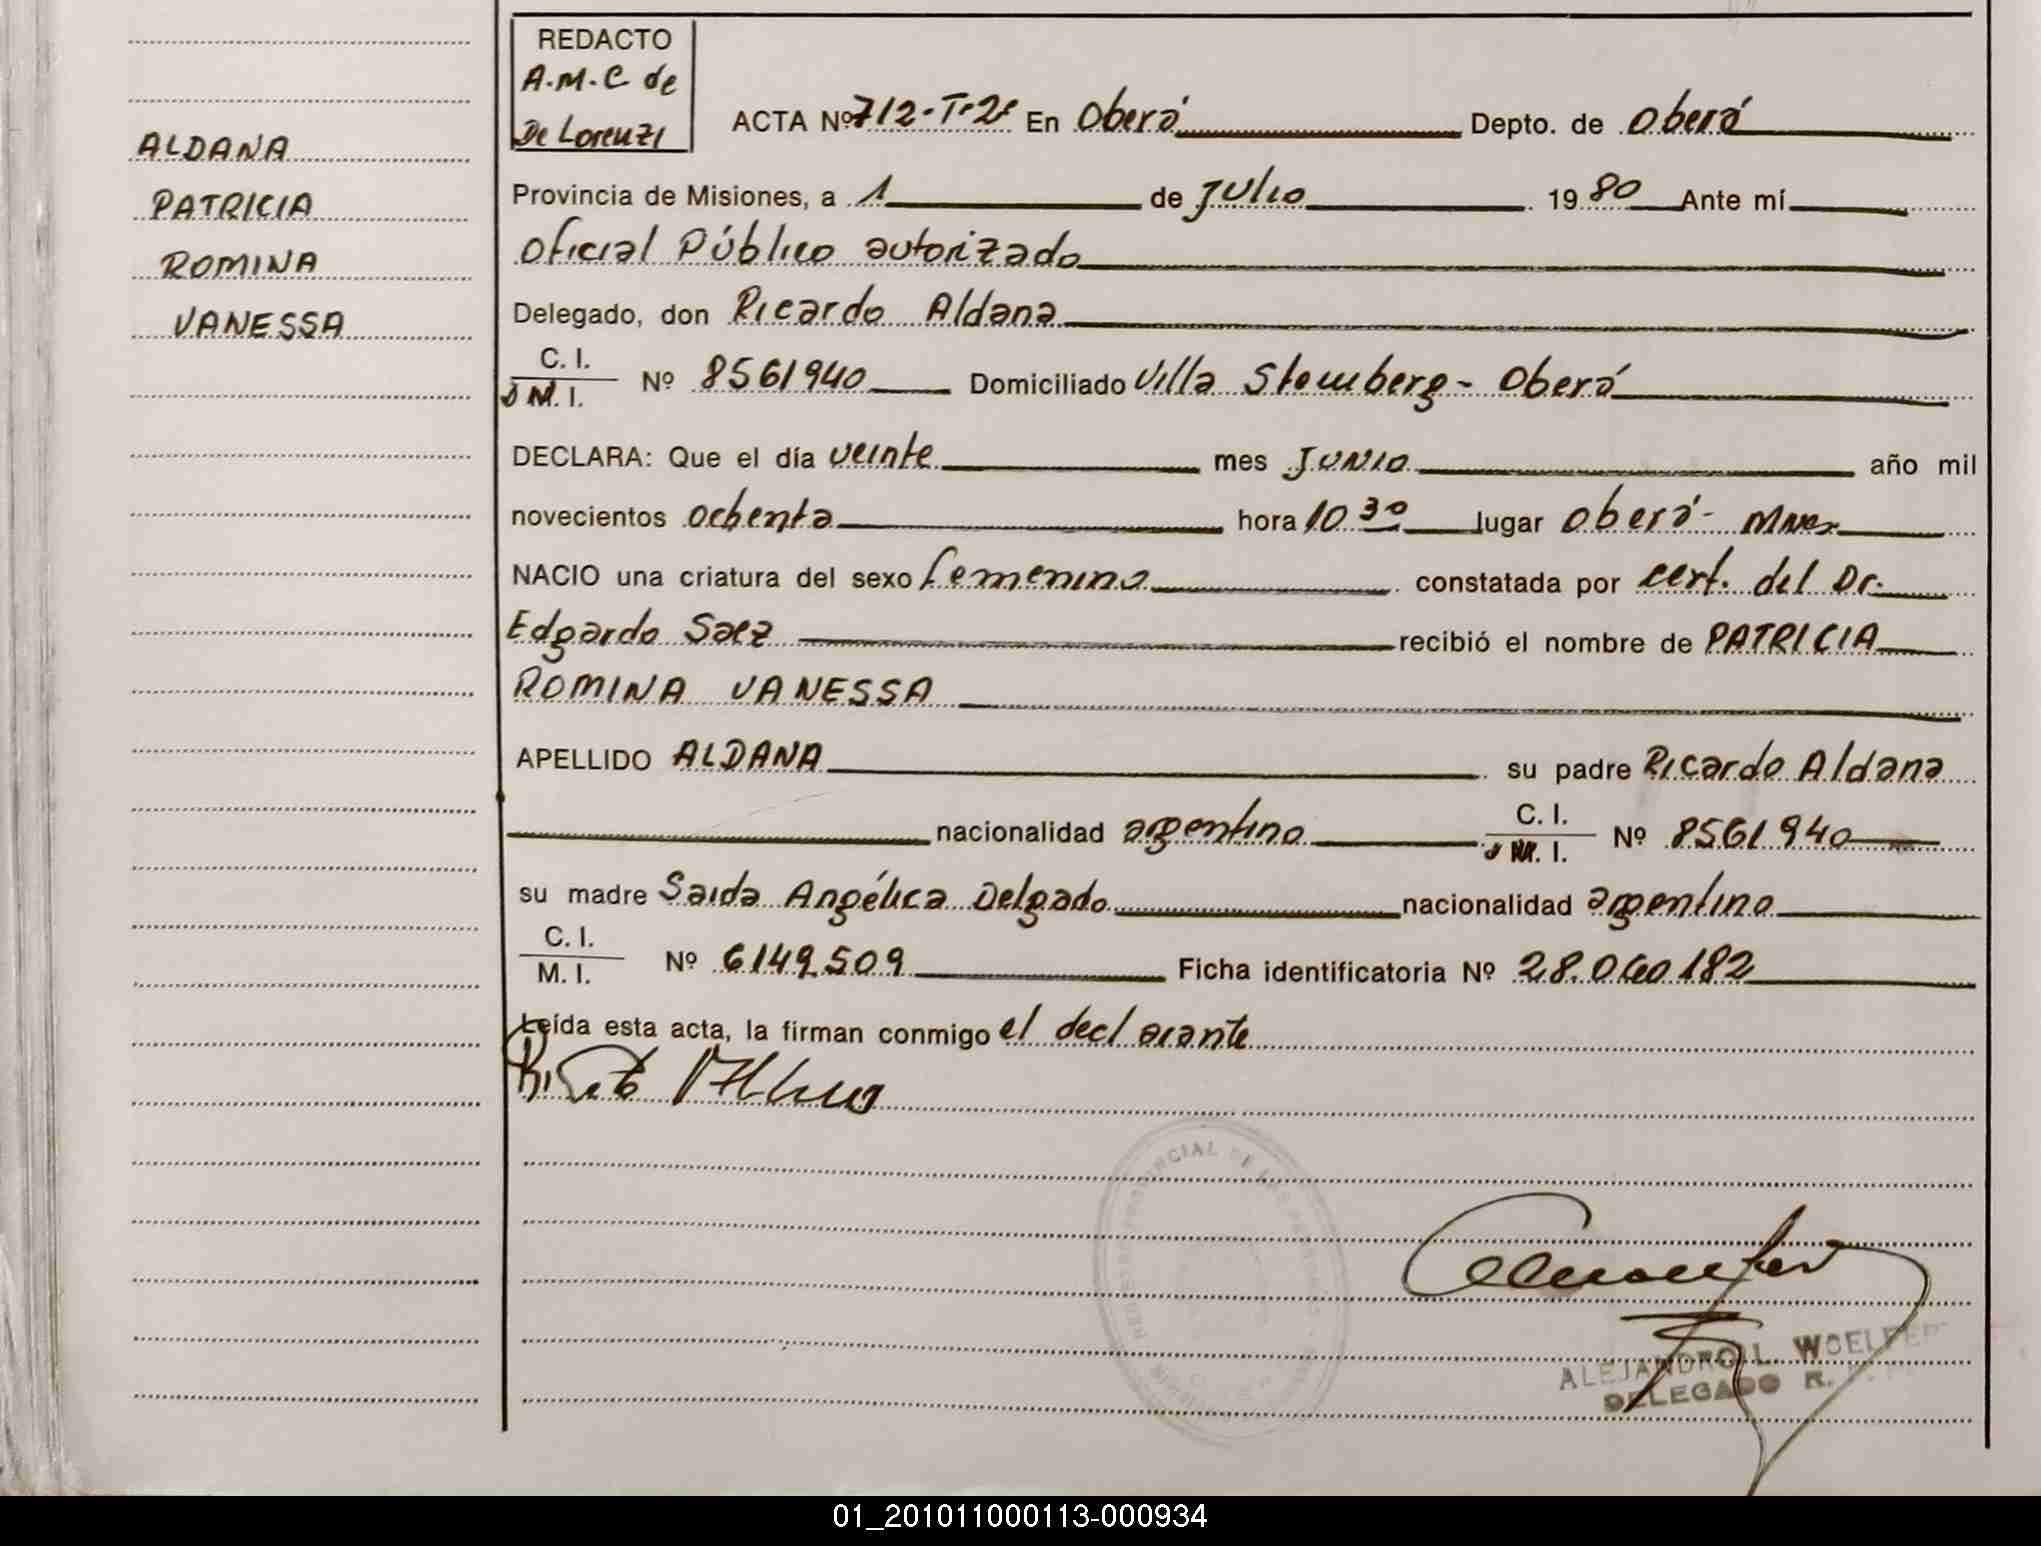 REDACTO
A.M.C de
De Lorenzi
ACTA Nº 712-Tº2º En Oberá Depto. de Oberá
ALDANA
PATRICIA
ROMINA
VANESSA
Provincia de Misiones, a 1 de Julio 1980 Ante mí
Oficial Público autorizado
Delegado, don Ricardo Aldana
C. I.
M. I. Nº 8561940 Domiciliado Villa Stemberg - Oberá
DECLARA: Que el día veinte mes Junio año mil
novecientos ochenta hora 10 30 lugar Oberá - Mnes
NACIO una criatura del sexo femenino constatada por cert. del Dr.
Edgardo Saez recibió el nombre de PATRICIA
ROMINA VANESSA
APELLIDO ALDANA su padre Ricardo Aldana
nacionalidad argentino C. I.
M. I. Nº 8561940
su madre Saida Angélica Delgado nacionalidad argentino
C. I.
M. I. Nº 6149509 Ficha identificatoria Nº 28.060182
Leída esta acta, la firman conmigo el declarante
ALEJANDRO L. WOELFERT
DELEGADO R.
01_201011000113-000934